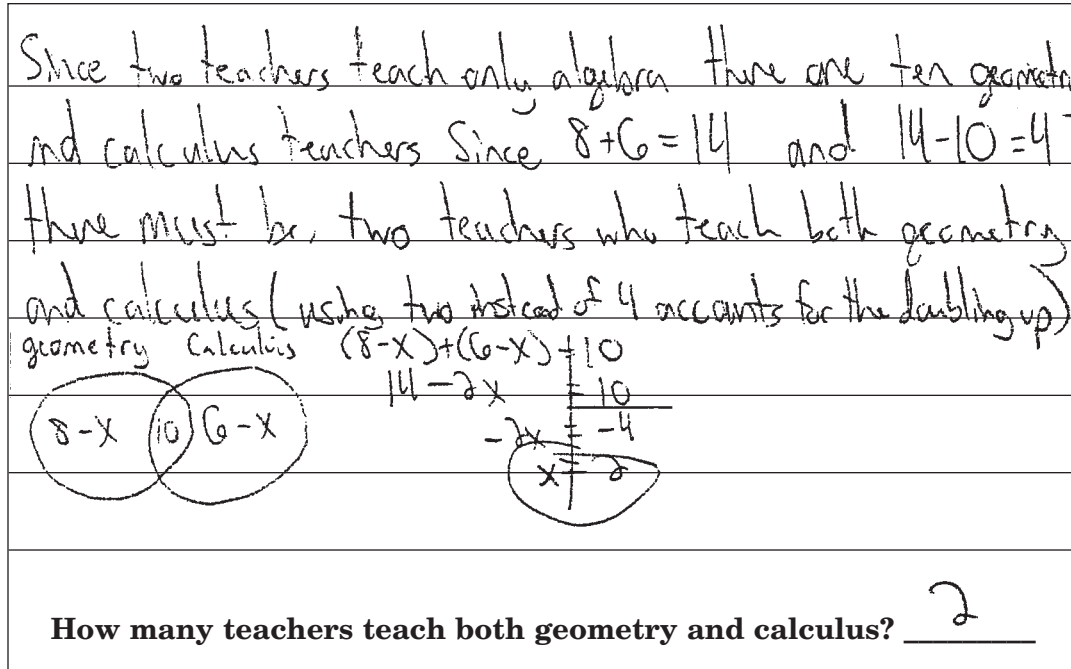 Since two teachers teach only algebra there are ten geometr
nd calculus teachers Since 8+6=14 and 14-10=4
there must be, two teachers who teach both geometry
and calculus (using two instead of 4 accounts for the doubling up)
geometry Calculus (8-x)+(6-x) = 10
14-2x = 10
8-x 10 6-x -2x = -4
x = 2
How many teachers teach both geometry and calculus? 2